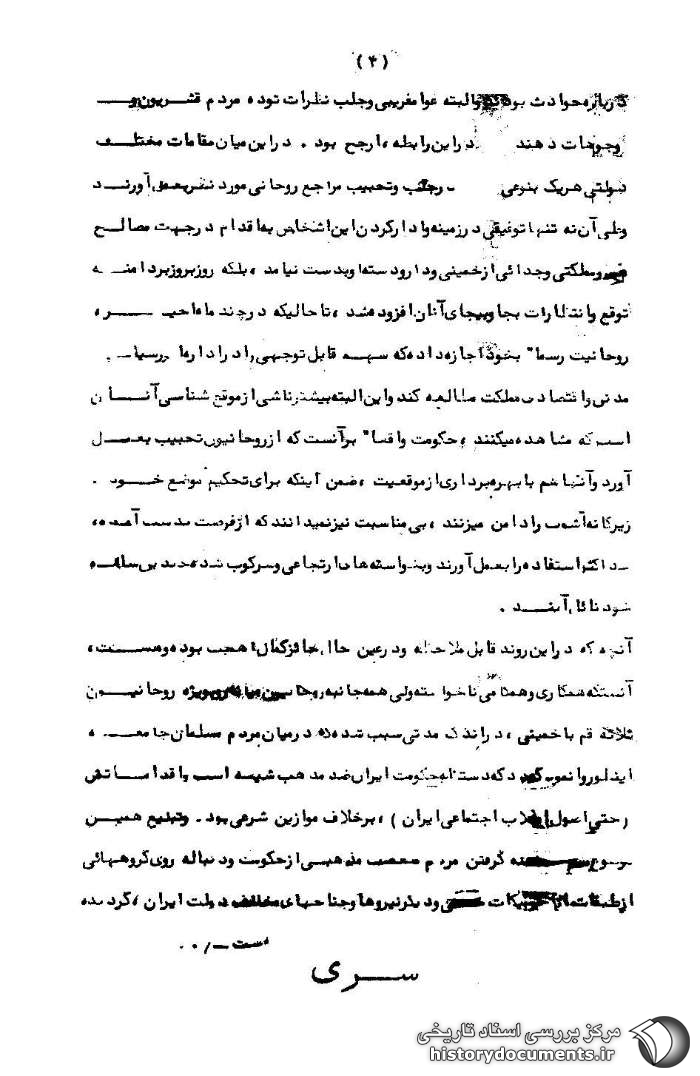 (۴)
درباره حوادث بوده و البته عوامفریبی و جلب نظرات توده مردم قشریون و
وجوهات دهند در این رابطه، ارجح بود. در این میان مقامات مختلف
دولتی هریک بنوعی جلب و تحبیب مراجع روحانی مورد نظر بعمل آورند
ولی آن نه تنها توفیقی در زمینه وادار کردن این اشخاص به اقدام در جهت مصالح
مملکتی و جدائی از خمینی و دار و دسته او بدست نیامد، بلکه روزبروز بر دامنه
توقع و انتظارات بجا و بیجای آنان افزوده شد، تا حالیکه در چند ماه اخیر،
روحانیت رسما" بخود اجازه داده که سهم قابل توجهی را در اداره سیاسی
مدنی و اقتصادی مملکت مطالبه کند و این البته بیشتر ناشی از موقع شناسی آنان
است که مشاهده میکنند، حکومت واقعا" برآنست که از روحانیون تحبیب بعمل
آورد و آنها هم با بهره برداری از موقعیت، ضمن اینکه برای تحکیم موضع خود
زیرکانه آشوب را دامن میزنند، بی مناسبت نیز نمیدانند که از فرصت بدست آمده،
حداکثر استفاده را بعمل آورند و بخواسته های ارتجاعی و سرکوب شده چند ین ساله
خود نائل آیند.
آنچه که در این روند قابل ملاحظه و در عین حال حائز کمال اهمیت بوده و هست،
آنستکه همکاری و همگامی ناخواسته ولی همه جانبه روحانیون بویژه روحانیون
ثلاثه قم با خمینی، در اندک مدتی سبب شده که در میان مردم مسلمان جامعه،
اینطور وانمود گردد که دستگاه حکومت ایران ضد مذهب شیعه است و اقداماتش
(حتی اصول انقلاب اجتماعی ایران)، برخلاف موازین شرعی بود. و تبلیغ همین
موضوع گرفتن مردم متعصب مذهبی از حکومت و دنباله روی گروههائی
از طبقات و دیگر نیروها و جناحهای مخالف دولت ایران، گردیده
است ./۰
سری
مرکز بررسی اسناد تاریخی
historydocuments.ir